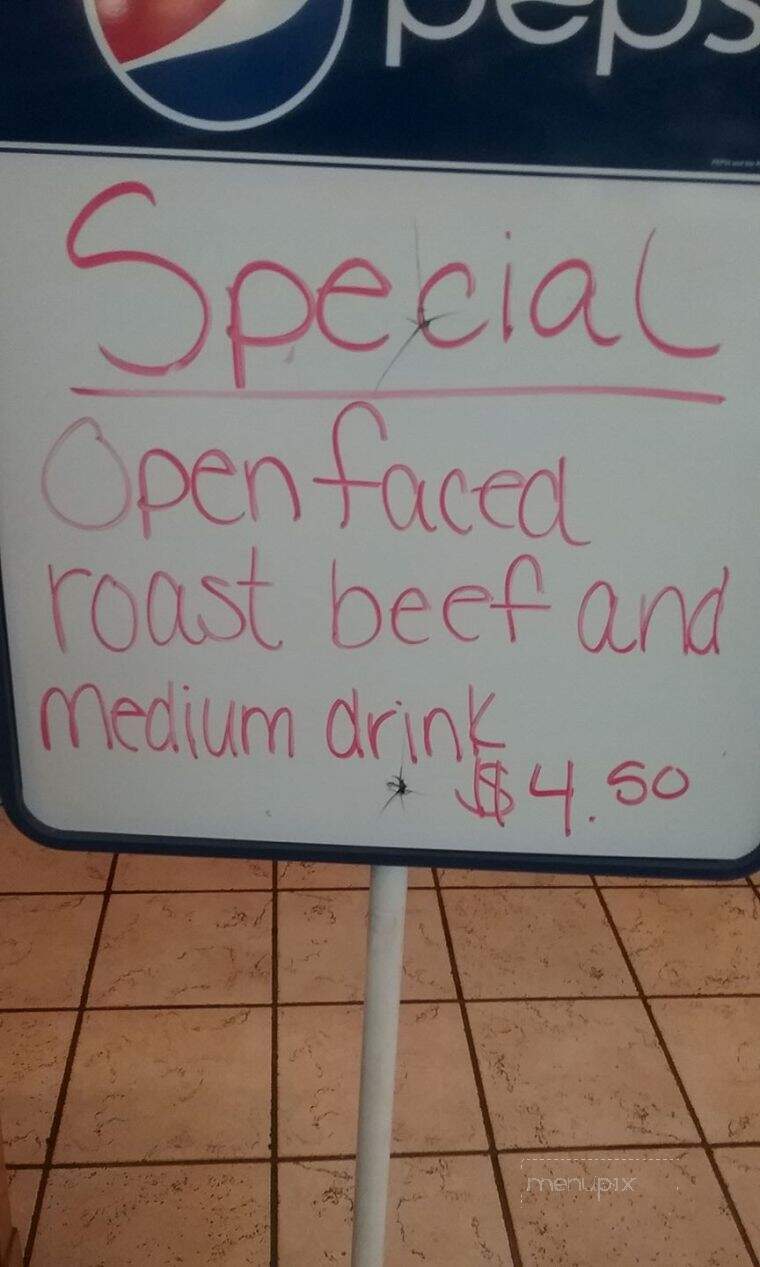 peps
Special
Open faced
roast beef and
medium drink
$4.50
menupix